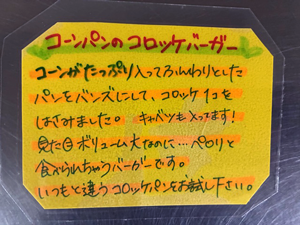 コーンパンの コロッケバーガー
コーンがたっぷり入ってふんわりとした
パンをバンズにして、コロッケ1コを
はさみました。 キャベツも入ってます!
見た目ボリューム大なのに…ペロリと
食べられちゃうバーガーです。
いつもと違うコロッケパンをお試し下さい。